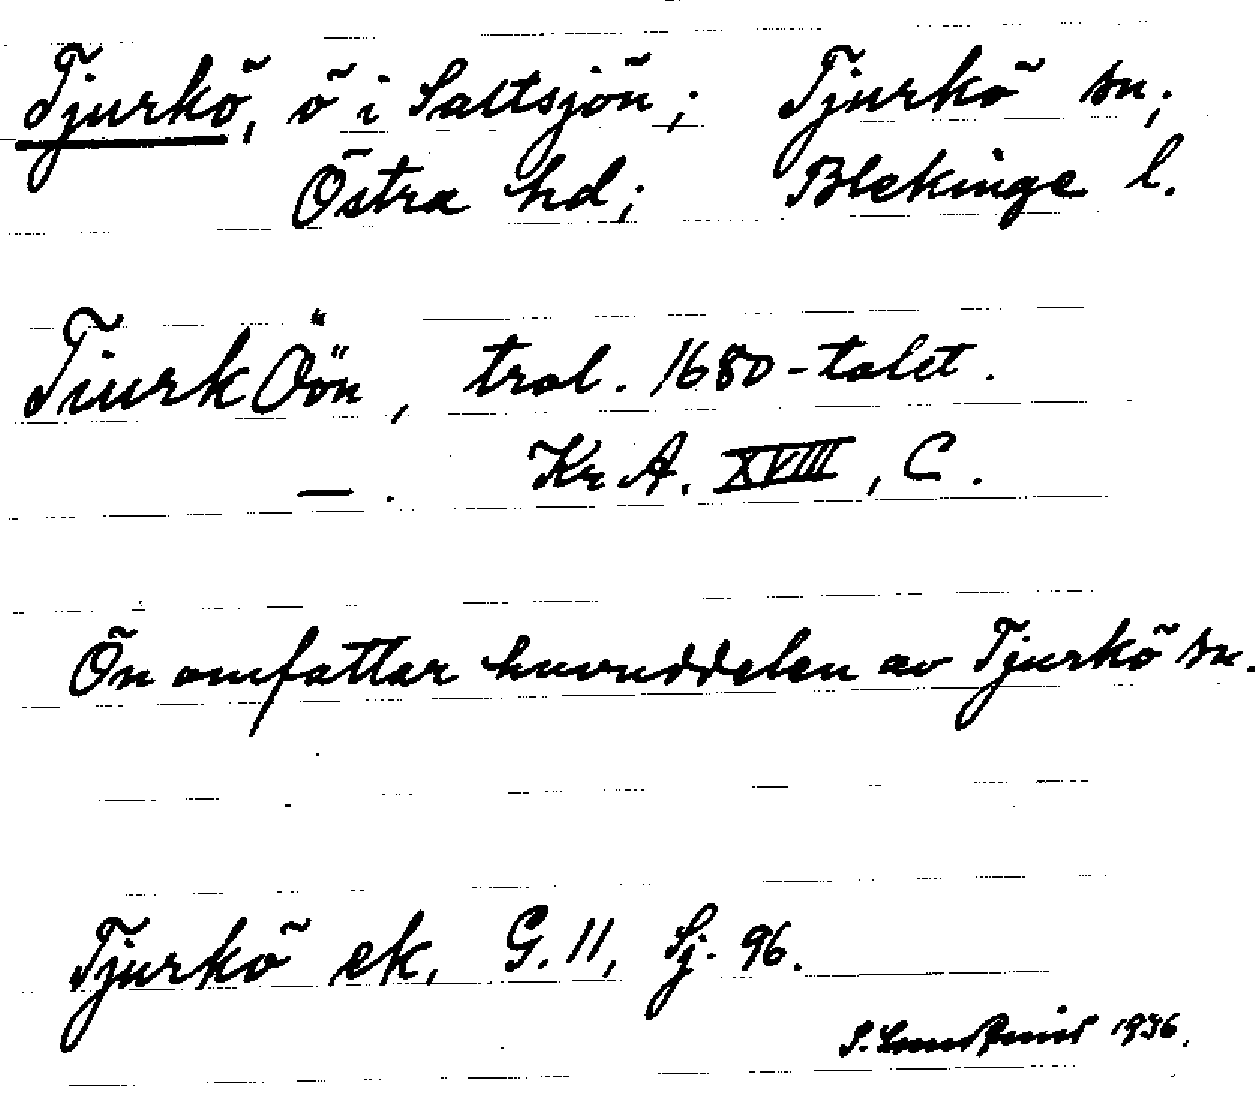 Tjurkö, ö i Saltsjön; Tjurkö sn;
Östra hd; Blekinge l.
Tiurk Öön, trol. 1680-talet.
— . Kr. A. XVIII, C.
Ön omfattar huvuddelen av Tjurkö sn.
Tjurkö ek. G. 11, Sj. 96.
S. 1936.